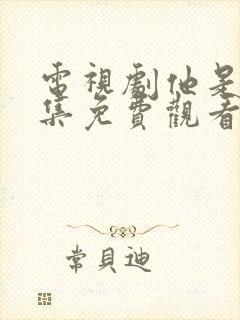 電視劇他是
集免費觀看
常貝迪